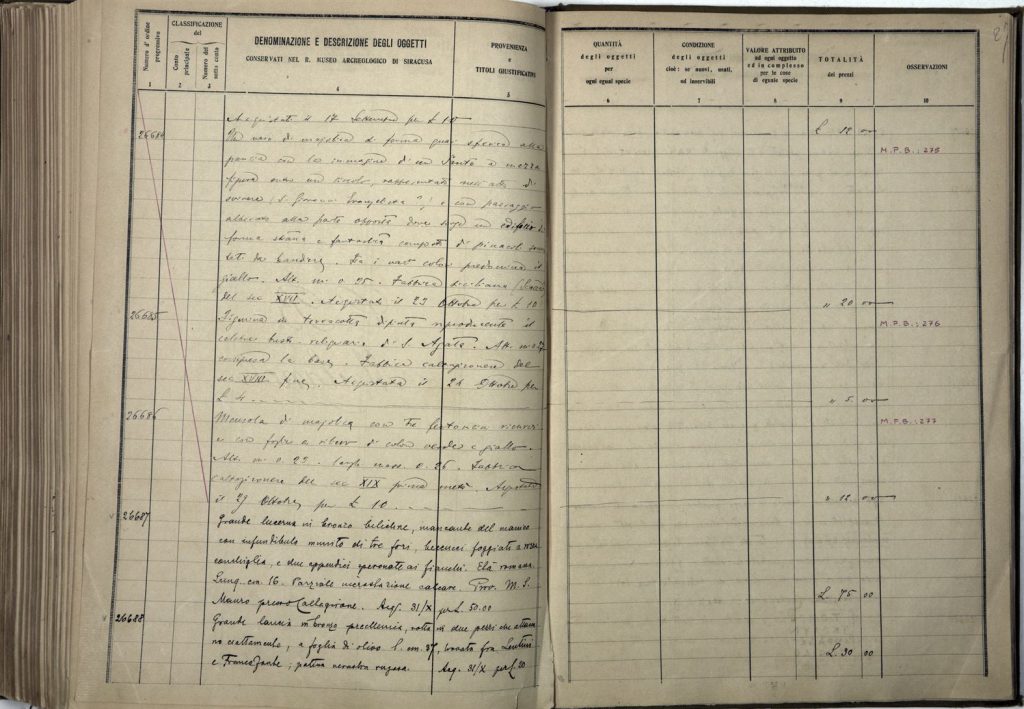 Numero d'ordine progressivo
CLASSIFICAZIONE
del
Conto principale
Numero del sotto conto
DENOMINAZIONE E DESCRIZIONE DEGLI OGGETTI
CONSERVATI NEL R. MUSEO ARCHEOLOGICO DI SIRACUSA
PROVENIENZA
e
TITOLI GIUSTIFICATIVI
1 2 3 4 5
Acquistati il 17 Settembre per £ 10
26684
Un vaso di majolica di forma quasi sferica alla
pancia con la immagine di un Santo a mezza
figura entro un circolo, rappresentato nell'atto di
scrivere (S. Giovanni Evangelista ?) e con paesaggio
alberato alla parte opposta dove sorge un edificio di
forma strana e fantastica composto di pinacoli
da bandiere. Fra i vari colori predomina il
giallo. Alt. m. 0.25. Fabbrica siciliana
del sec XVII. Acquistato il 29 Ottobre per £ 10
26685
Figurina di terracotta dipinta riproducente il
celebre busto-reliquiario di S. Agata. Alt. m.
compresa la base. Fabbrica caltagironese del
sec XVIII fine. Acquistata il 26 Ottobre per
£ 4
26686
Mensola di majolica con tre
e con foglie a rilievo di colore verde e giallo.
Alt. m. 0.25. Largh. mass. 0.26. Fabbrica
caltagironese del sec XIX prima metà. Acquistata
il 29 Ottobre per £ 10
v 26687
Grande lucerna in bronzo bilicne, mancante del manico
con infundibulo munito di tre fori, beccucci foggiati a
conchiglia, e due appendici speronate ai fianchi. Età romana.
Lung. cm 16. Parziale incrostazione calcare. Prov. M. S.
Mauro presso Caltagirone. Acq. 31/X per £ 50.00
v 26688
Grande lancia in bronzo, rotta in due pezzi che attacca-
no esattamente, a foglia di olivo l. cm. 37, trovata fra Lentini
e Francofonte; patina nerastra rugosa. Acq. 31/X per £. 20
QUANTITÀ
degli oggetti
per
ogni egual specie
CONDIZIONE
degli oggetti
cioè: se nuovi, usati,
od inservibili
VALORE ATTRIBUITO
ad ogni oggetto
ed in complesso
per le cose
di eguale specie
TOTALITÀ
dei prezzi
OSSERVAZIONI
6 7 8 9 10
£ 12 00
M.P.B.: 275
" 20 00
M.P.B.: 276
" 5 00
M.P.B.: 277
" 12 00
£. 75 00
£. 30 00